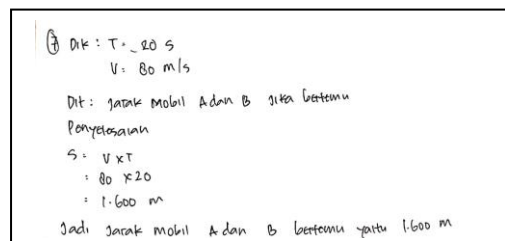 7 Dik : T = 20 s
V = 80 m/s
Dit : Jarak mobil A dan B jika bertemu
Penyelesaian
S = V x T
= 80 x 20
= 1.600 m
Jadi Jarak mobil A dan B bertemu yaitu 1.600 m